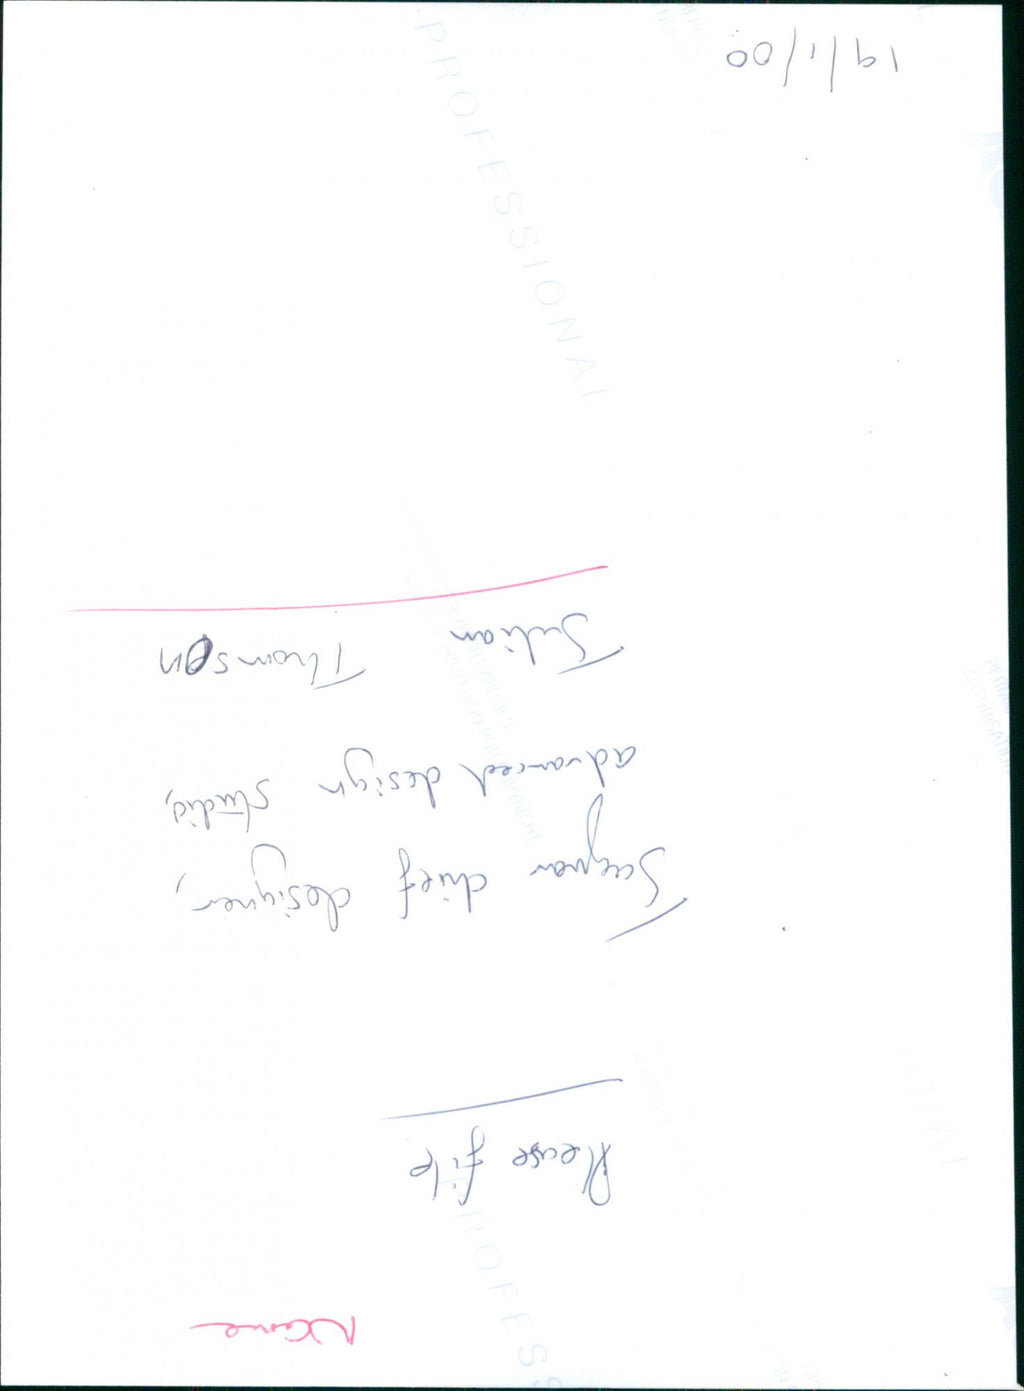 Name
Please file
Jaguar chief designer,
advanced design studio,
Julian Thomson
19/1/00
PROFESSIONAL
PROFES